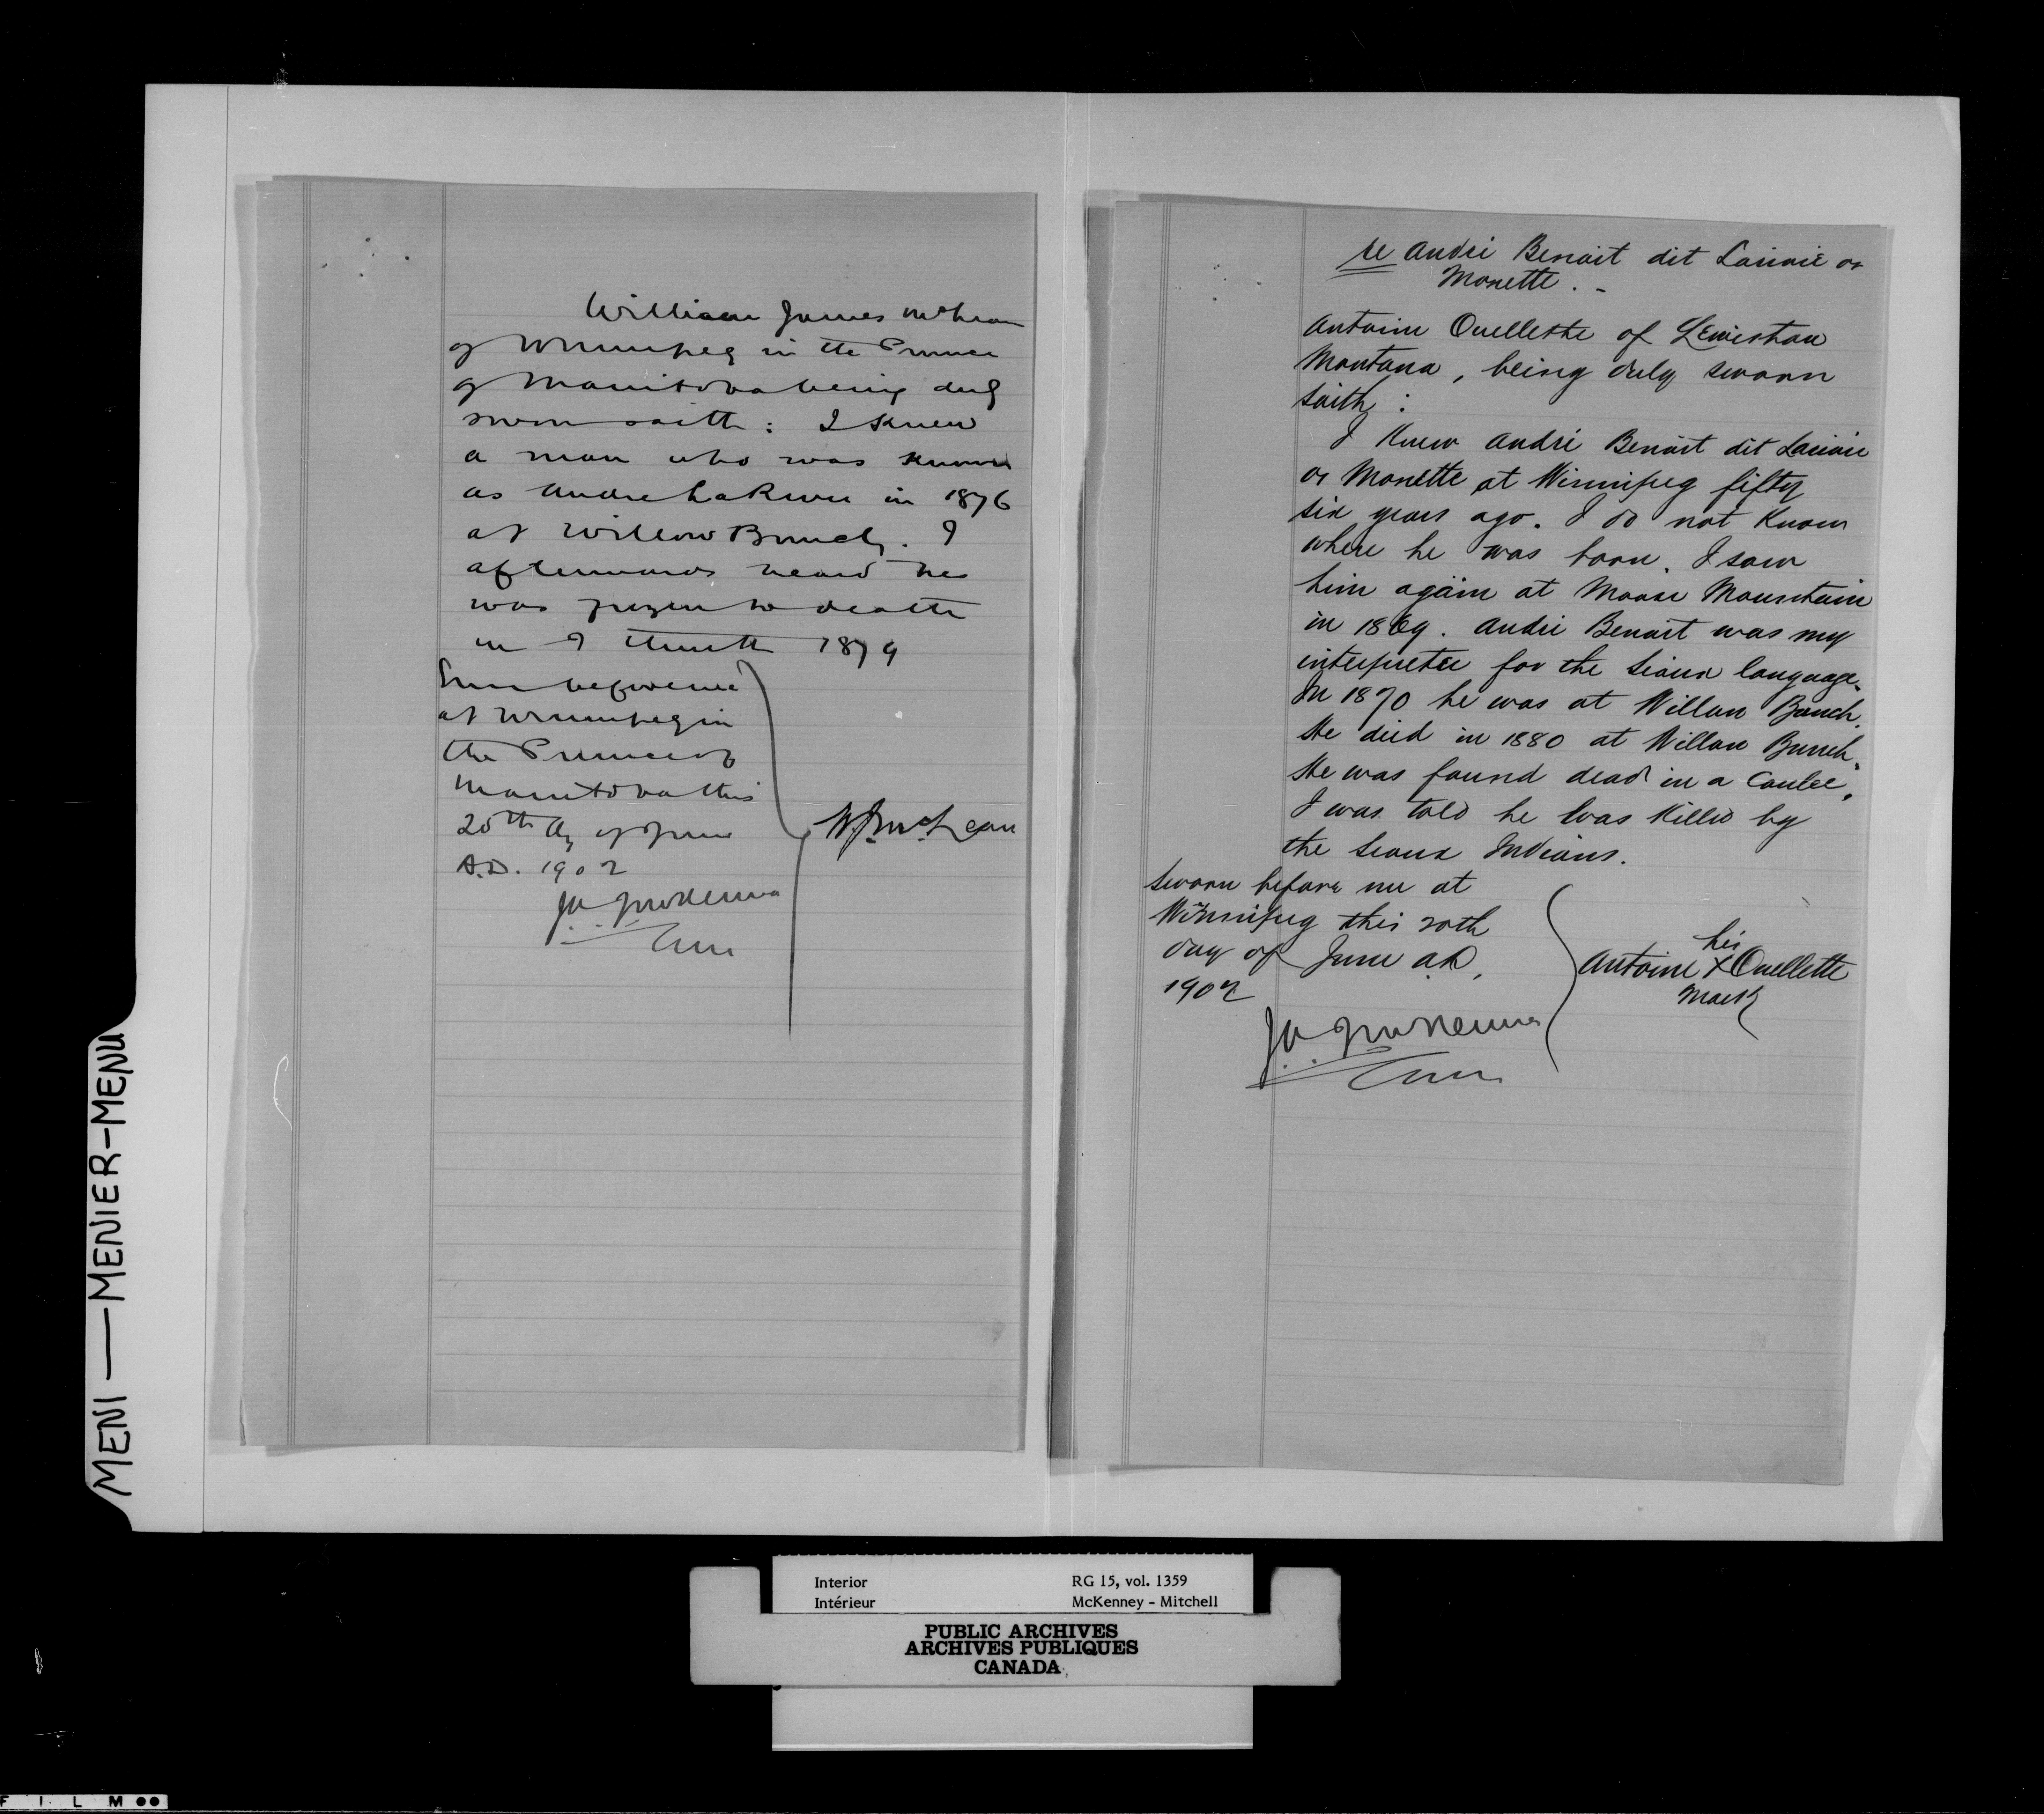 William James McLean
of Winnipeg in the Province
of Manitoba being duly
sworn saith : I knew
a man who was known
as Andre LaRivier in 1876
at Willow Bunch. I
afterwards heard he
was frozen to death
in I think 1879
Sworn before me
at Winnipeg in
the Province of
Manitoba this
20th day of June
A.D. 1902
W.J. McLean
J.A.J. McKenna
Com
re André Benoit dit Lariviè or
Monette . -
Antoine Ouellette of Lewistown
Montana, being duly sworn
saith :
I knew André Benoit dit Lariviè
or Monette at Winnipeg fifty
six years ago. I do not know
where he was born. I saw
him again at Moose Mountain
in 1869. André Benoit was my
interpreter for the Sioux language.
In 1870 he was at Willow Bunch.
He died in 1880 at Willow Bunch.
He was found dead in a Coulee.
I was told he was killed by
the Sioux Indians.
Sworn before me at
Winnipeg this 20th
day of June A.D.
1902
his
Antoine X Ouellette
mark
J.A.J. McKenna
Com
MENI — MENIER-MENU
Interior RG 15, vol. 1359
Intérieur McKenney - Mitchell
PUBLIC ARCHIVES
ARCHIVES PUBLIQUES
CANADA
FILM